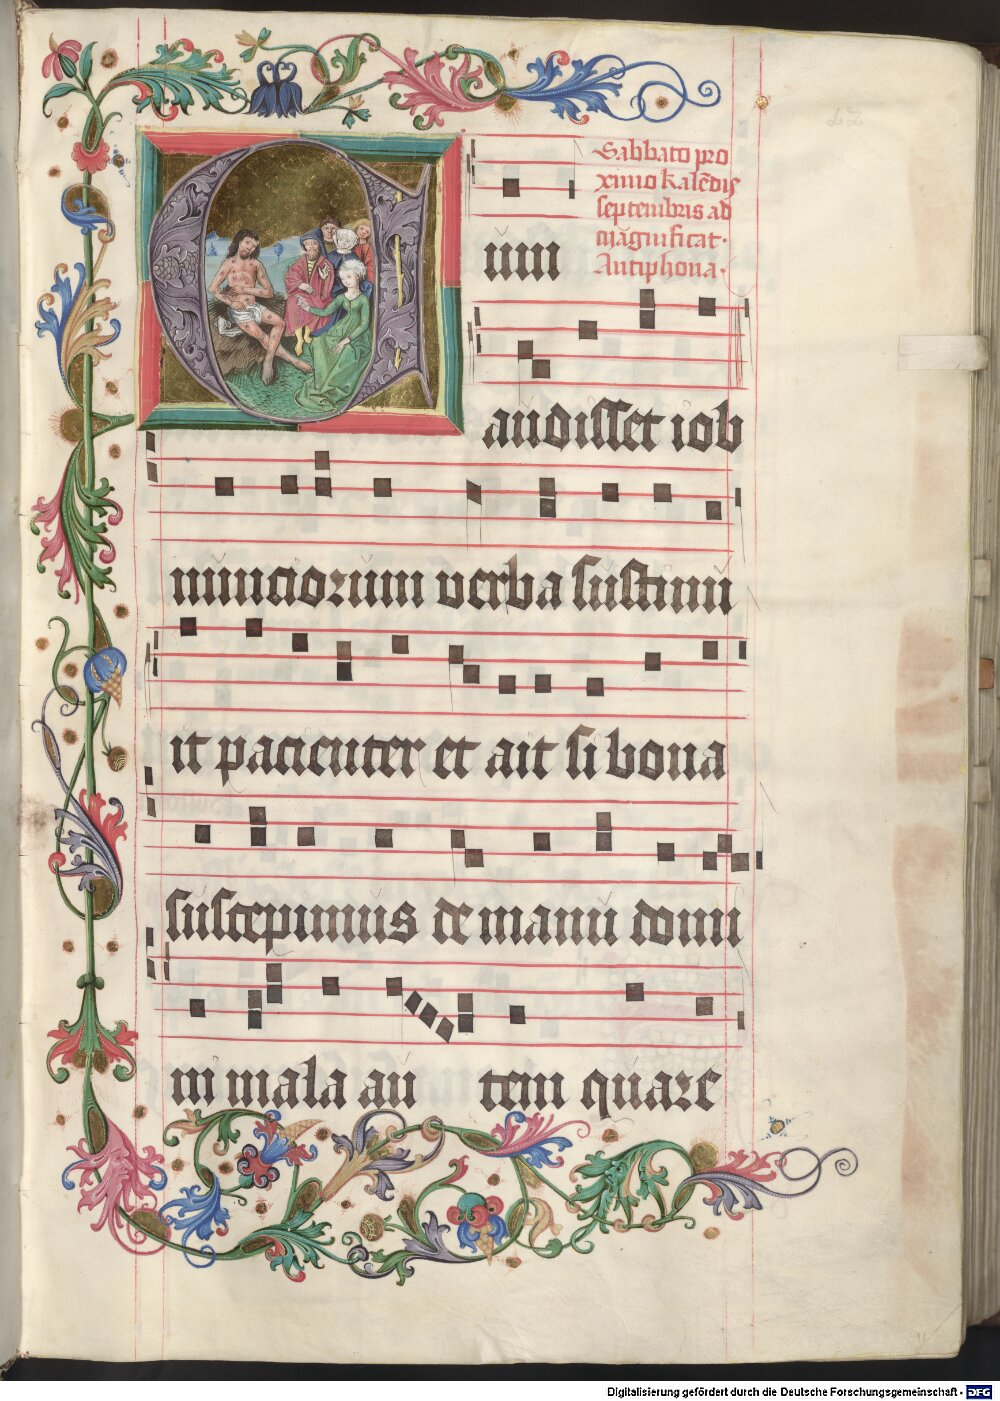 Sabbato pro
ximo kalēdis
septembris ad
magnificat·
Antiphona·
Cum
audisset iob
nunciorum verba sustinu
it pacienter et ait si bona
suscepimus de manu domi
ni mala au tem quare
Digitalisierung gefördert durch die Deutsche Forschungsgemeinschaft - DFG